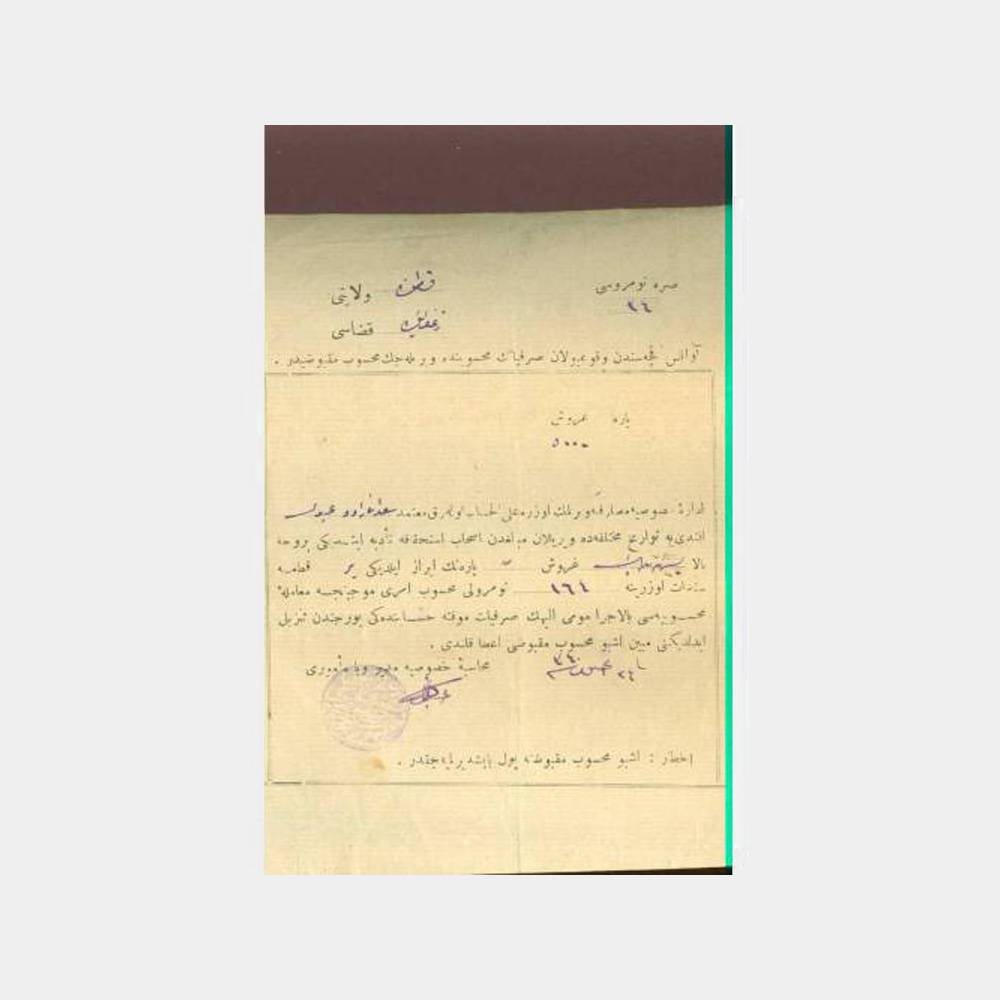 صره نومروسی
٣٤
ولایتی
قضاسی
آوانس قچه‌سندن وقوعبولان صرفیاتك محسوبنده ویریله‌جك محسوب مقبوضیدر .
پاره غروش
٥٠٠٠
اداره خصوصیه مصارفه ویرلمك اوزره علی الحساب اوله‌رق معتمد
افندی‌یه تواریخ مختلفه‌ده ویریلان مبالغدن اصحاب استحقاقه تأدیه ایتدیکی بروجه
بالا غروش پاره‌نك ابراز ایلدیکی قطعه
سندات اوزرینه ١٦١ نومرولی محسوب امری موجبنجه معامله
محسوبیه‌سی بالاجرا مومی الیهك صرفیات موقته حسابنده‌کی بورجندن تنزیل
ایدلدیکنی مبین اشبو محسوب مقبوضی اعطا قلندی .
محاسبۀ خصوصیه مدیر ویا مأموری
اخطار : اشبو محسوب مقبوضنه پول یاپشدیریله‌جقدر .